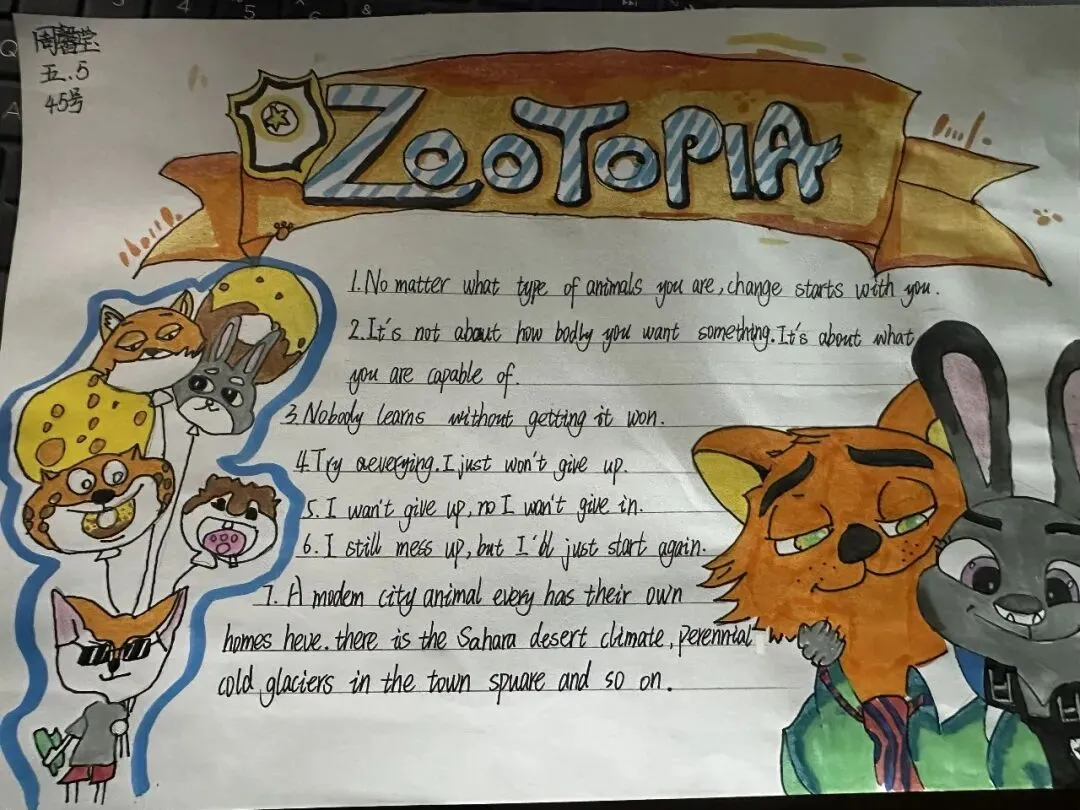 周馨莹
五.5
45号
ZooTopiA
1.No matter what type of animals you are, change starts with you.
2.It's not about how bodly you want something. It's about what
you are capable of.
3.Nobody learns without getting it won.
4.Try aeverying. I just won't give up.
5. I wan't give up, no I wan't give in.
6. I still mess up, but I'll just start again.
7. A modem city animal every has their own
homes heve. there is the Sahara desert climate, perennial
cold glaciers in the town spuare and so on.